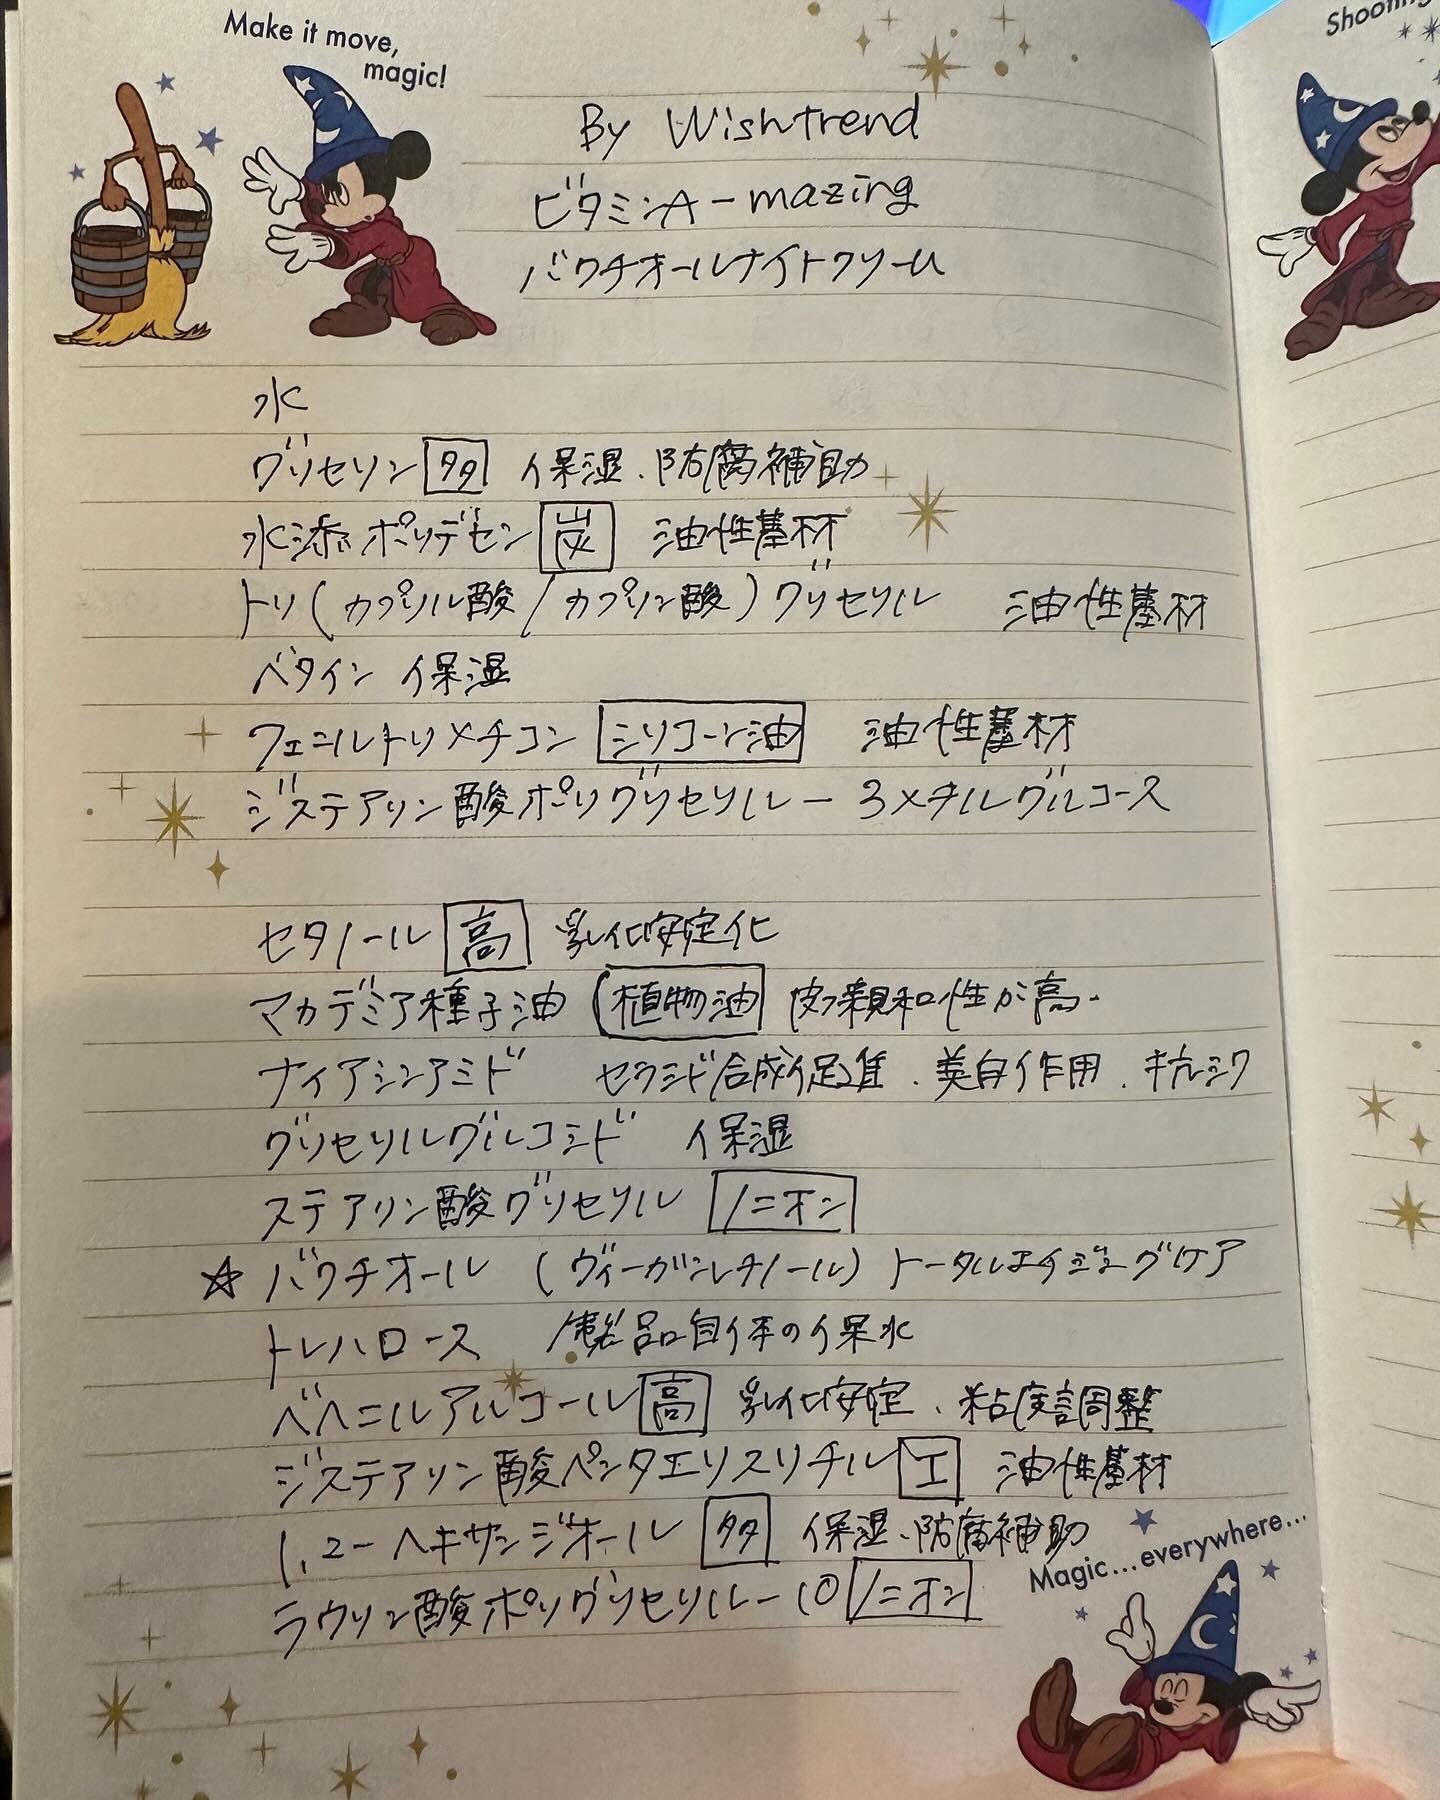 Make it move,
magic!
Shooting
By Wishtrend
ビタミンA-mazing
バクチオールナイトクリーム
水
グリセリン 多 保湿、防腐補助
水添ポリデセン 炭 油性基材
トリ(カプリル酸/カプリン酸)グリセリル 油性基材
ベタイン 保湿
フェニルトリメチコン シリコーン油 油性基材
ジステアリン酸ポリグリセリル-3メチルグルコース
セタノール 高 乳化安定化
マカデミア種子油 (植物油 皮フ親和性が高
ナイアシンアミド セラミド合成促進、美白作用、抗シワ
グリセリルグルコシド 保湿
ステアリン酸グリセリル ノニオン
☆ バクチオール (ヴィーガンレチノール) トータルエイジングケア
トレハロース 製品自体の保水
ベヘニルアルコール 高 乳化安定、粘度調整
ジステアリン酸ペンタエリスリチル エ 油性基材
1,2-ヘキサンジオール 多 保湿、防腐補助
ラウリン酸ポリグリセリル-10 ノニオン
Magic...everywhere...